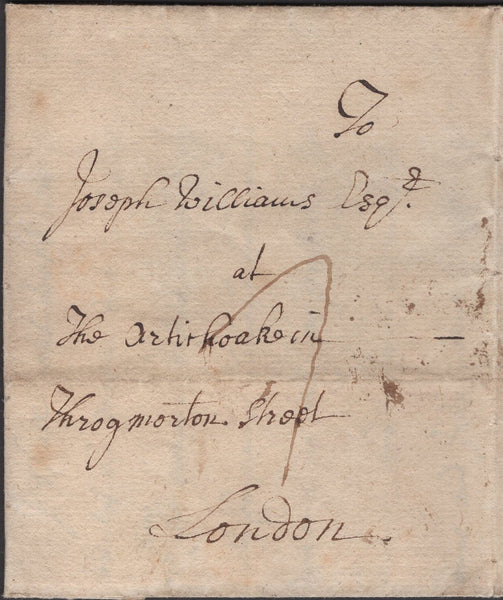 To
Joseph Williams Esqr.
at
The Artichoake in —
Throgmorton Street
London.
7